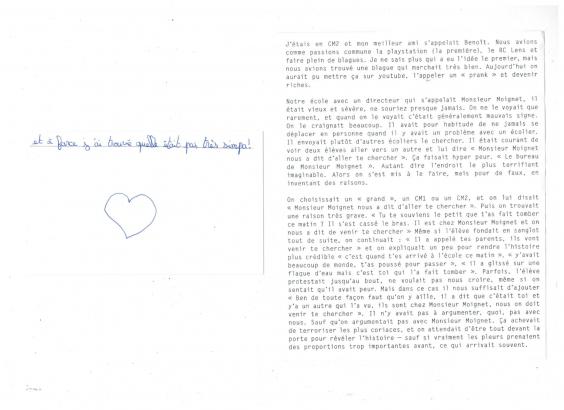 et à force j'ai trouvé qu'elle était pas très sympa!
J'étais en CM2 et mon meilleur ami s'appelait Benoît. Nous avions
comme passions commune la playstation (la première), le RC Lens et
faire plein de blagues. Je ne sais plus qui a eu l'idée le premier, mais
nous avions trouvé une blague qui marchait très bien. Aujourd'hui on
aurait pu mettre ça sur youtube, l'appeler un « prank » et devenir
riches.
Notre école avec un directeur qui s'appelait Monsieur Moignet, il
était vieux et sévère, ne souriez presque jamais. On ne le voyait que
rarement, et quand on le voyait c'était généralement mauvais signe.
On le craignait beaucoup. Il avait pour habitude de ne jamais se
déplacer en personne quand il y avait un problème avec un écolier.
Il envoyait plutôt d'autres écoliers le chercher. Il était courant de
voir deux élèves aller vers un autre et lui dire « Monsieur Moignet
nous a dit d'aller te chercher ». Ça faisait hyper peur. « Le bureau
de Monsieur Moignet ». Autant dire l'endroit le plus terrifiant
imaginable. Alors on s'est mis à le faire, mais pour de faux, en
inventant des raisons.
On choisissait un « grand », un CM1 ou un CM2, et on lui disait
« Monsieur Moignet nous a dit d'aller te chercher ». Puis on trouvait
une raison très grave. « Tu te souviens le petit que t'as fait tomber
ce matin ? Il s'est cassé le bras. Il est chez Monsieur Moignet et on
nous a dit de venir te chercher » Même si l'élève fondait en sanglot
tout de suite, on continuait : « Il a appelé tes parents, ils vont
venir te chercher » et on expliquait un peu pour rendre l'histoire
plus crédible « c'est quand t'es arrivé à l'école ce matin », « y'avait
beaucoup de monde, t'as poussé pour passer », « il a glissé sur une
flaque d'eau mais c'est toi qui l'a fait tomber ». Parfois, l'élève
protestait jusqu'au bout, ne voulait pas nous croire, même si on
sentait qu'il avait peur. Mais dans ce cas il nous suffisait d'ajouter
« Ben de toute façon faut qu'on y aille, il a dit que c'était toi et
y'a un autre qui l'a vu, ils sont chez Monsieur Moignet, nous on doit
venir te chercher ». Il n'y avait pas à argumenter, quoi, pas avec
nous. Sauf qu'on argumentait pas avec Monsieur Moignet. Ça achevait
de terroriser les plus coriaces, et on attendait d'être tout devant la
porte pour révéler l'histoire — sauf si vraiment les pleurs prenaient
des proportions trop importantes avant, ce qui arrivait souvent.